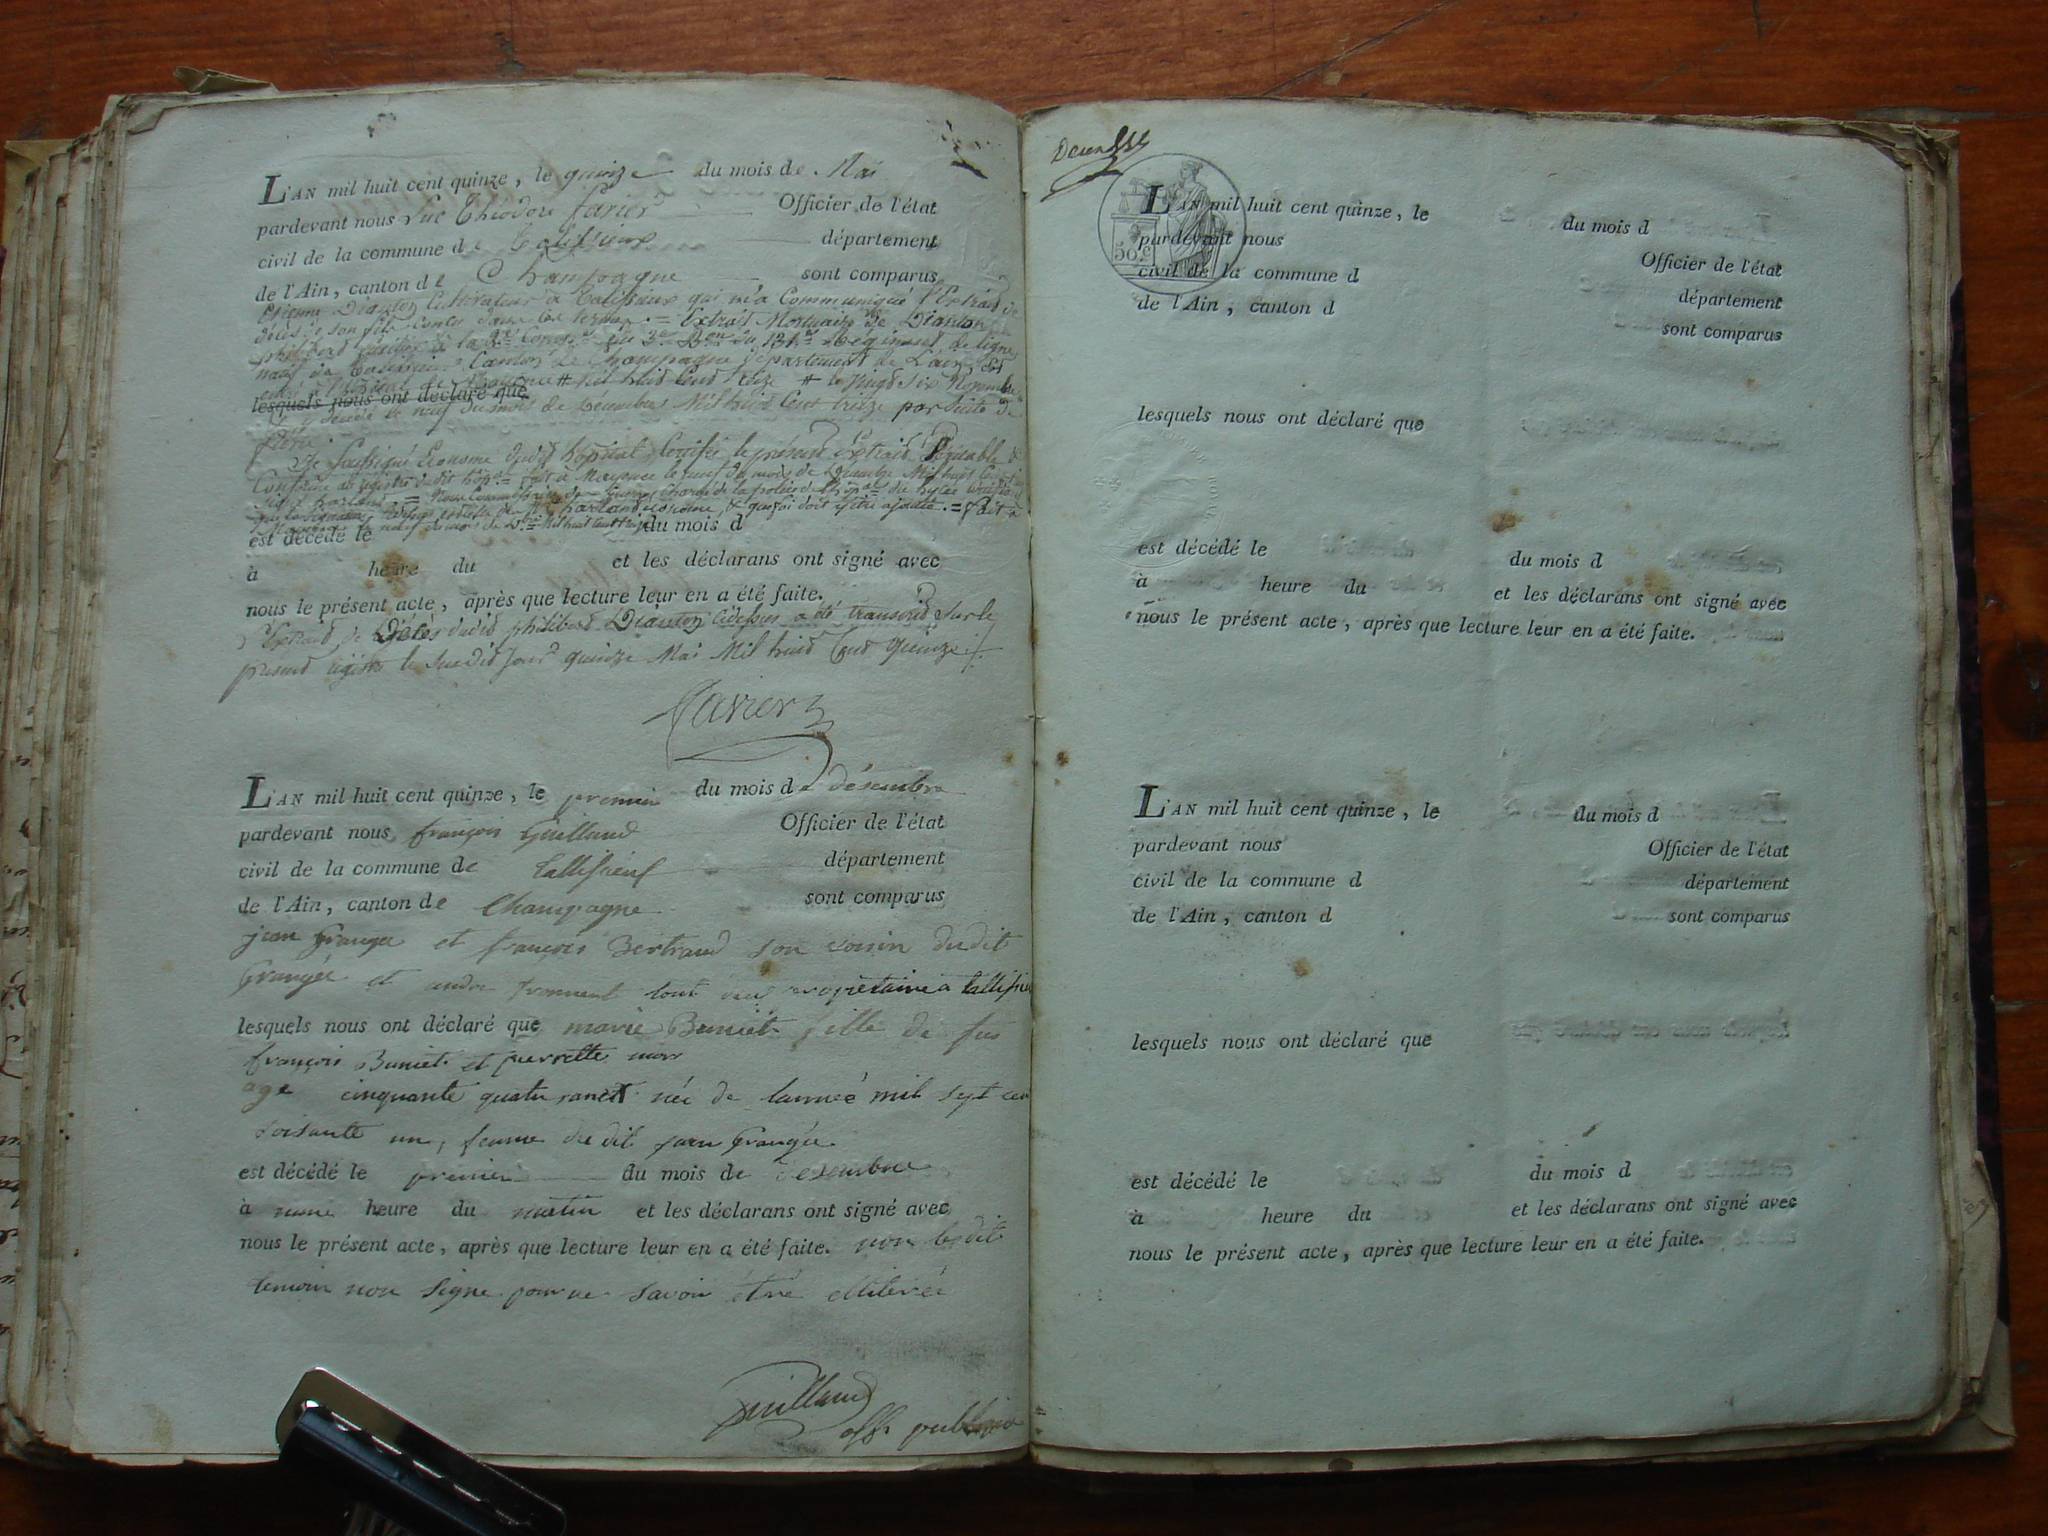 L'AN mil huit cent quinze, le quinze du mois de Mai
pardevant nous Luc Théodore Favier Officier de l'état
civil de la commune de Talissieux département
de l'Ain, canton de Champagne sont comparus
Etienne Dianton Cultivateur à Talissieux qui m'a Communiqué l'Extrait de
décès de son fils = Extrait Mortuaire de Dianton
philibert fusilier à la du 3e Bon du 131e Régiment de ligne
natif de Canton de Champagne, département de L'ain, est
hôpital de Mayence # Mil huit Cent treize # le vingt six Novembre
lesquels nous ont déclaré que
décédé le neuf du mois de Décembre Mil huit Cent treize par suite de
fièvre
Je soussigné Econome dudit hôpital, Certifie le présent Extrait Véritable &
Conforme au registre dudit hôp. = fait à Mayence le neuf du mois de Décembre Mil huit Cent
Chargé de la police de l'hôpal du
économe, & que foi doit y être ajoutée. = fait à
le neuf du mois de Mil huit Cent
est décédé le du mois d
à heure du et les déclarans ont signé avec
nous le présent acte, après que lecture leur en a été faite.
L'Extrait de Décès dudit philibert Dianton Cidessus a été transcrit sur le
present registre le susdit jour quinze Mai Mil huit Cent quinze
Favier
L'AN mil huit cent quinze, le premier du mois de désembre
pardevant nous françois Guilland Officier de l'état
civil de la commune de tallisieux département
de l'Ain, canton de Champagne sont comparus
jean Grangée et françois Bertrand son voisin dudit
Grangée et andre froment tout propietaire a tallisieu
lesquels nous ont déclaré que marie Buniet fille de feu
françois Buniet et pierrette
age cinquante quatre née de lannée mil sept cen
soisante un, femme du dit jean Grangée
est décédé le premier du mois de desembre
à heure du matin et les déclarans ont signé avec
nous le présent acte, après que lecture leur en a été faite. non ledit
temoin non signe pour ne savoir étré
Guilland
off. public
50 c.
L'AN mil huit cent quinze, le du mois d
pardevant nous Officier de l'état
civil de la commune d département
de l'Ain, canton d sont comparus
lesquels nous ont déclaré que
est décédé le du mois d
à heure du et les déclarans ont signé avec
nous le présent acte, après que lecture leur en a été faite.
L'AN mil huit cent quinze, le du mois d
pardevant nous Officier de l'état
civil de la commune d département
de l'Ain, canton d sont comparus
lesquels nous ont déclaré que
est décédé le du mois d
à heure du et les déclarans ont signé avec
nous le présent acte, après que lecture leur en a été faite.